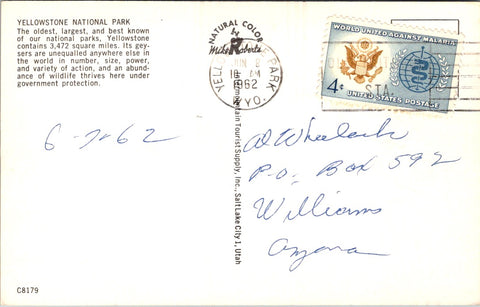 YELLOWSTONE NATIONAL PARK
The oldest, largest, and best known
of our national parks, Yellowstone
contains 3,472 square miles. Its gey-
sers are unequalled anywhere else
in the world in number, size, power,
and variety of action, and an abund-
ance of wildlife thrives here under
government protection.
NATURAL COLOR
by
Mike Roberts
YELLOWSTONE PARK
JUN 8
10 AM
1962
WYO.
STA.
WORLD UNITED AGAINST MALARIA
4¢
UNITED STATES POSTAGE
Tourist Supply, Inc., Salt Lake City 1, Utah
6-7-62
Al Wheelock
P.O. Box 592
Williams
C8179